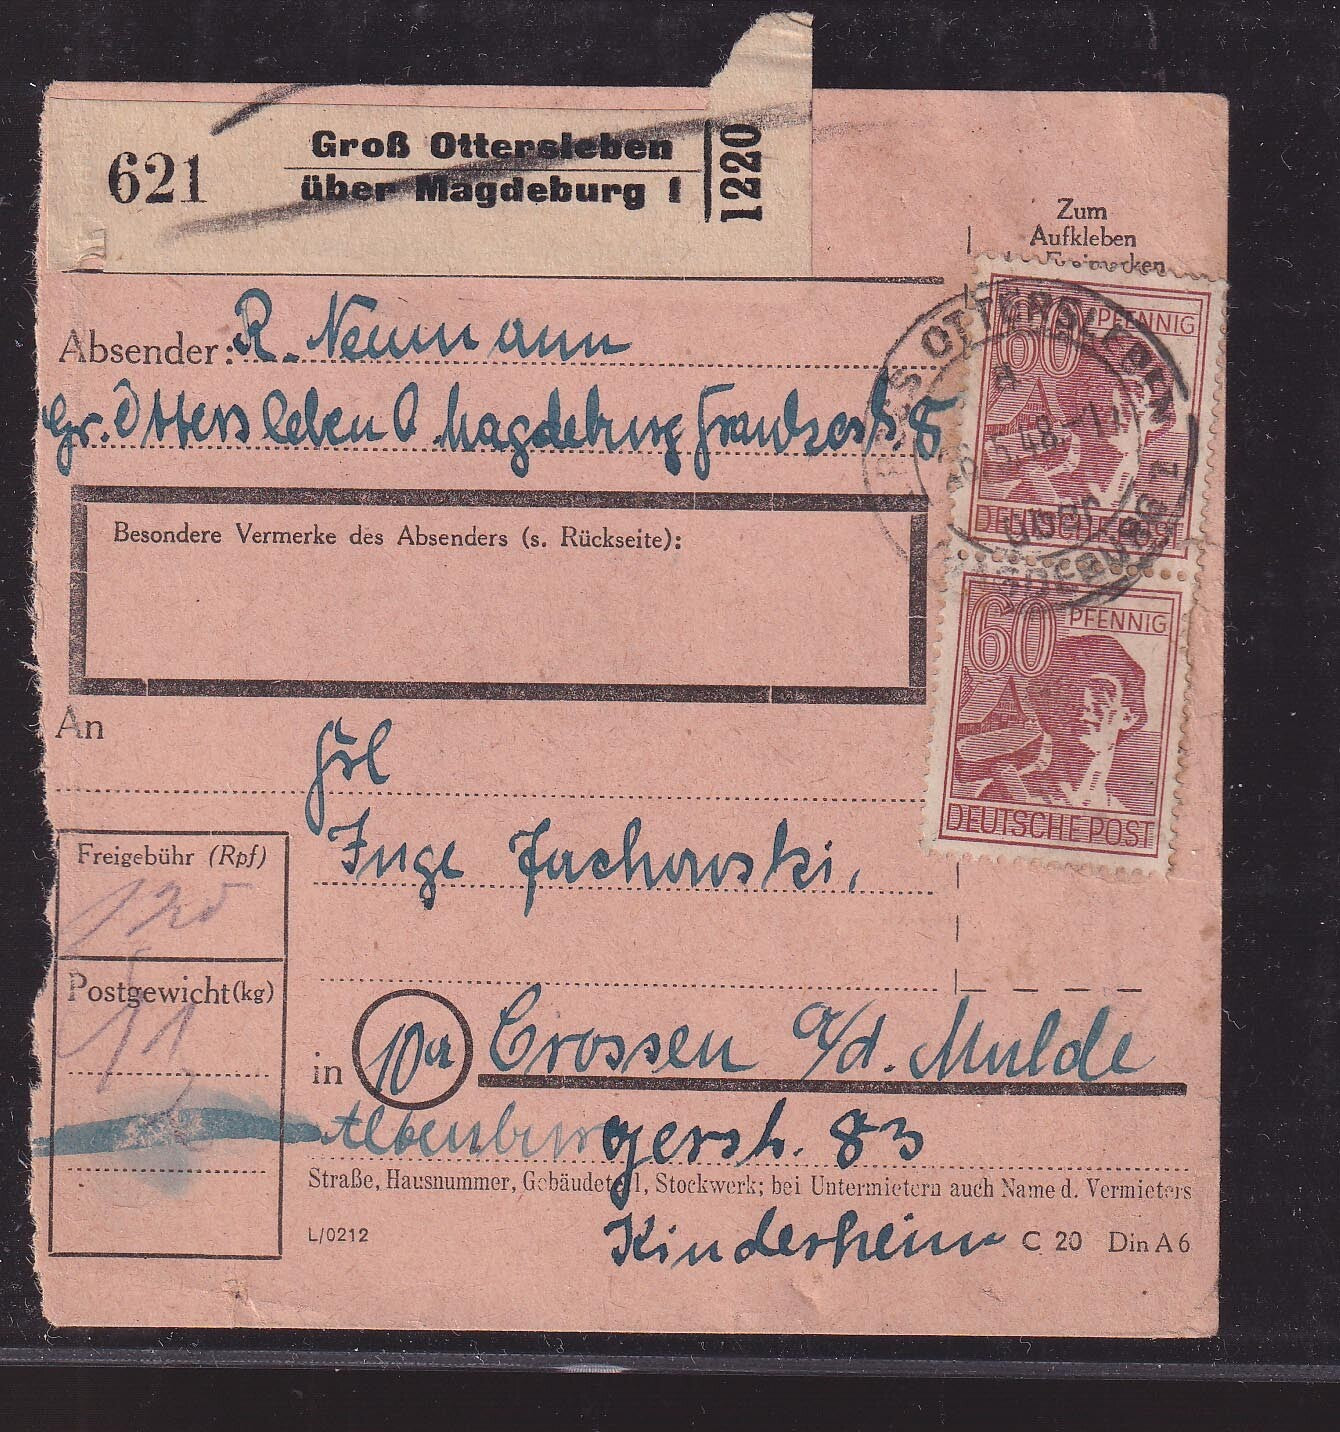 621
Groß Ottersleben
über Magdeburg 1
1220
Zum
Aufkleben
Absender: R. Neumann
Gr. Ottersleben b Magdeburg Frankestr 8
Besondere Vermerke des Absenders (s. Rückseite):
60 PFENNIG
DEUTSCHE POST
GROSS OTTERSLEBEN
5.48.-17
über
MAGDEBURG
60 PFENNIG
DEUTSCHE POST
An
Frl
Inge Jachowski,
Freigebühr (Rpf)
120
Postgewicht (kg)
in 10a Crossen a/d. Mulde
Altenburgerstr. 83
Straße, Hausnummer, Gebäudeteil, Stockwerk; bei Untermietern auch Name d. Vermieters
L/0212
Kinderheim C 20 Din A 6